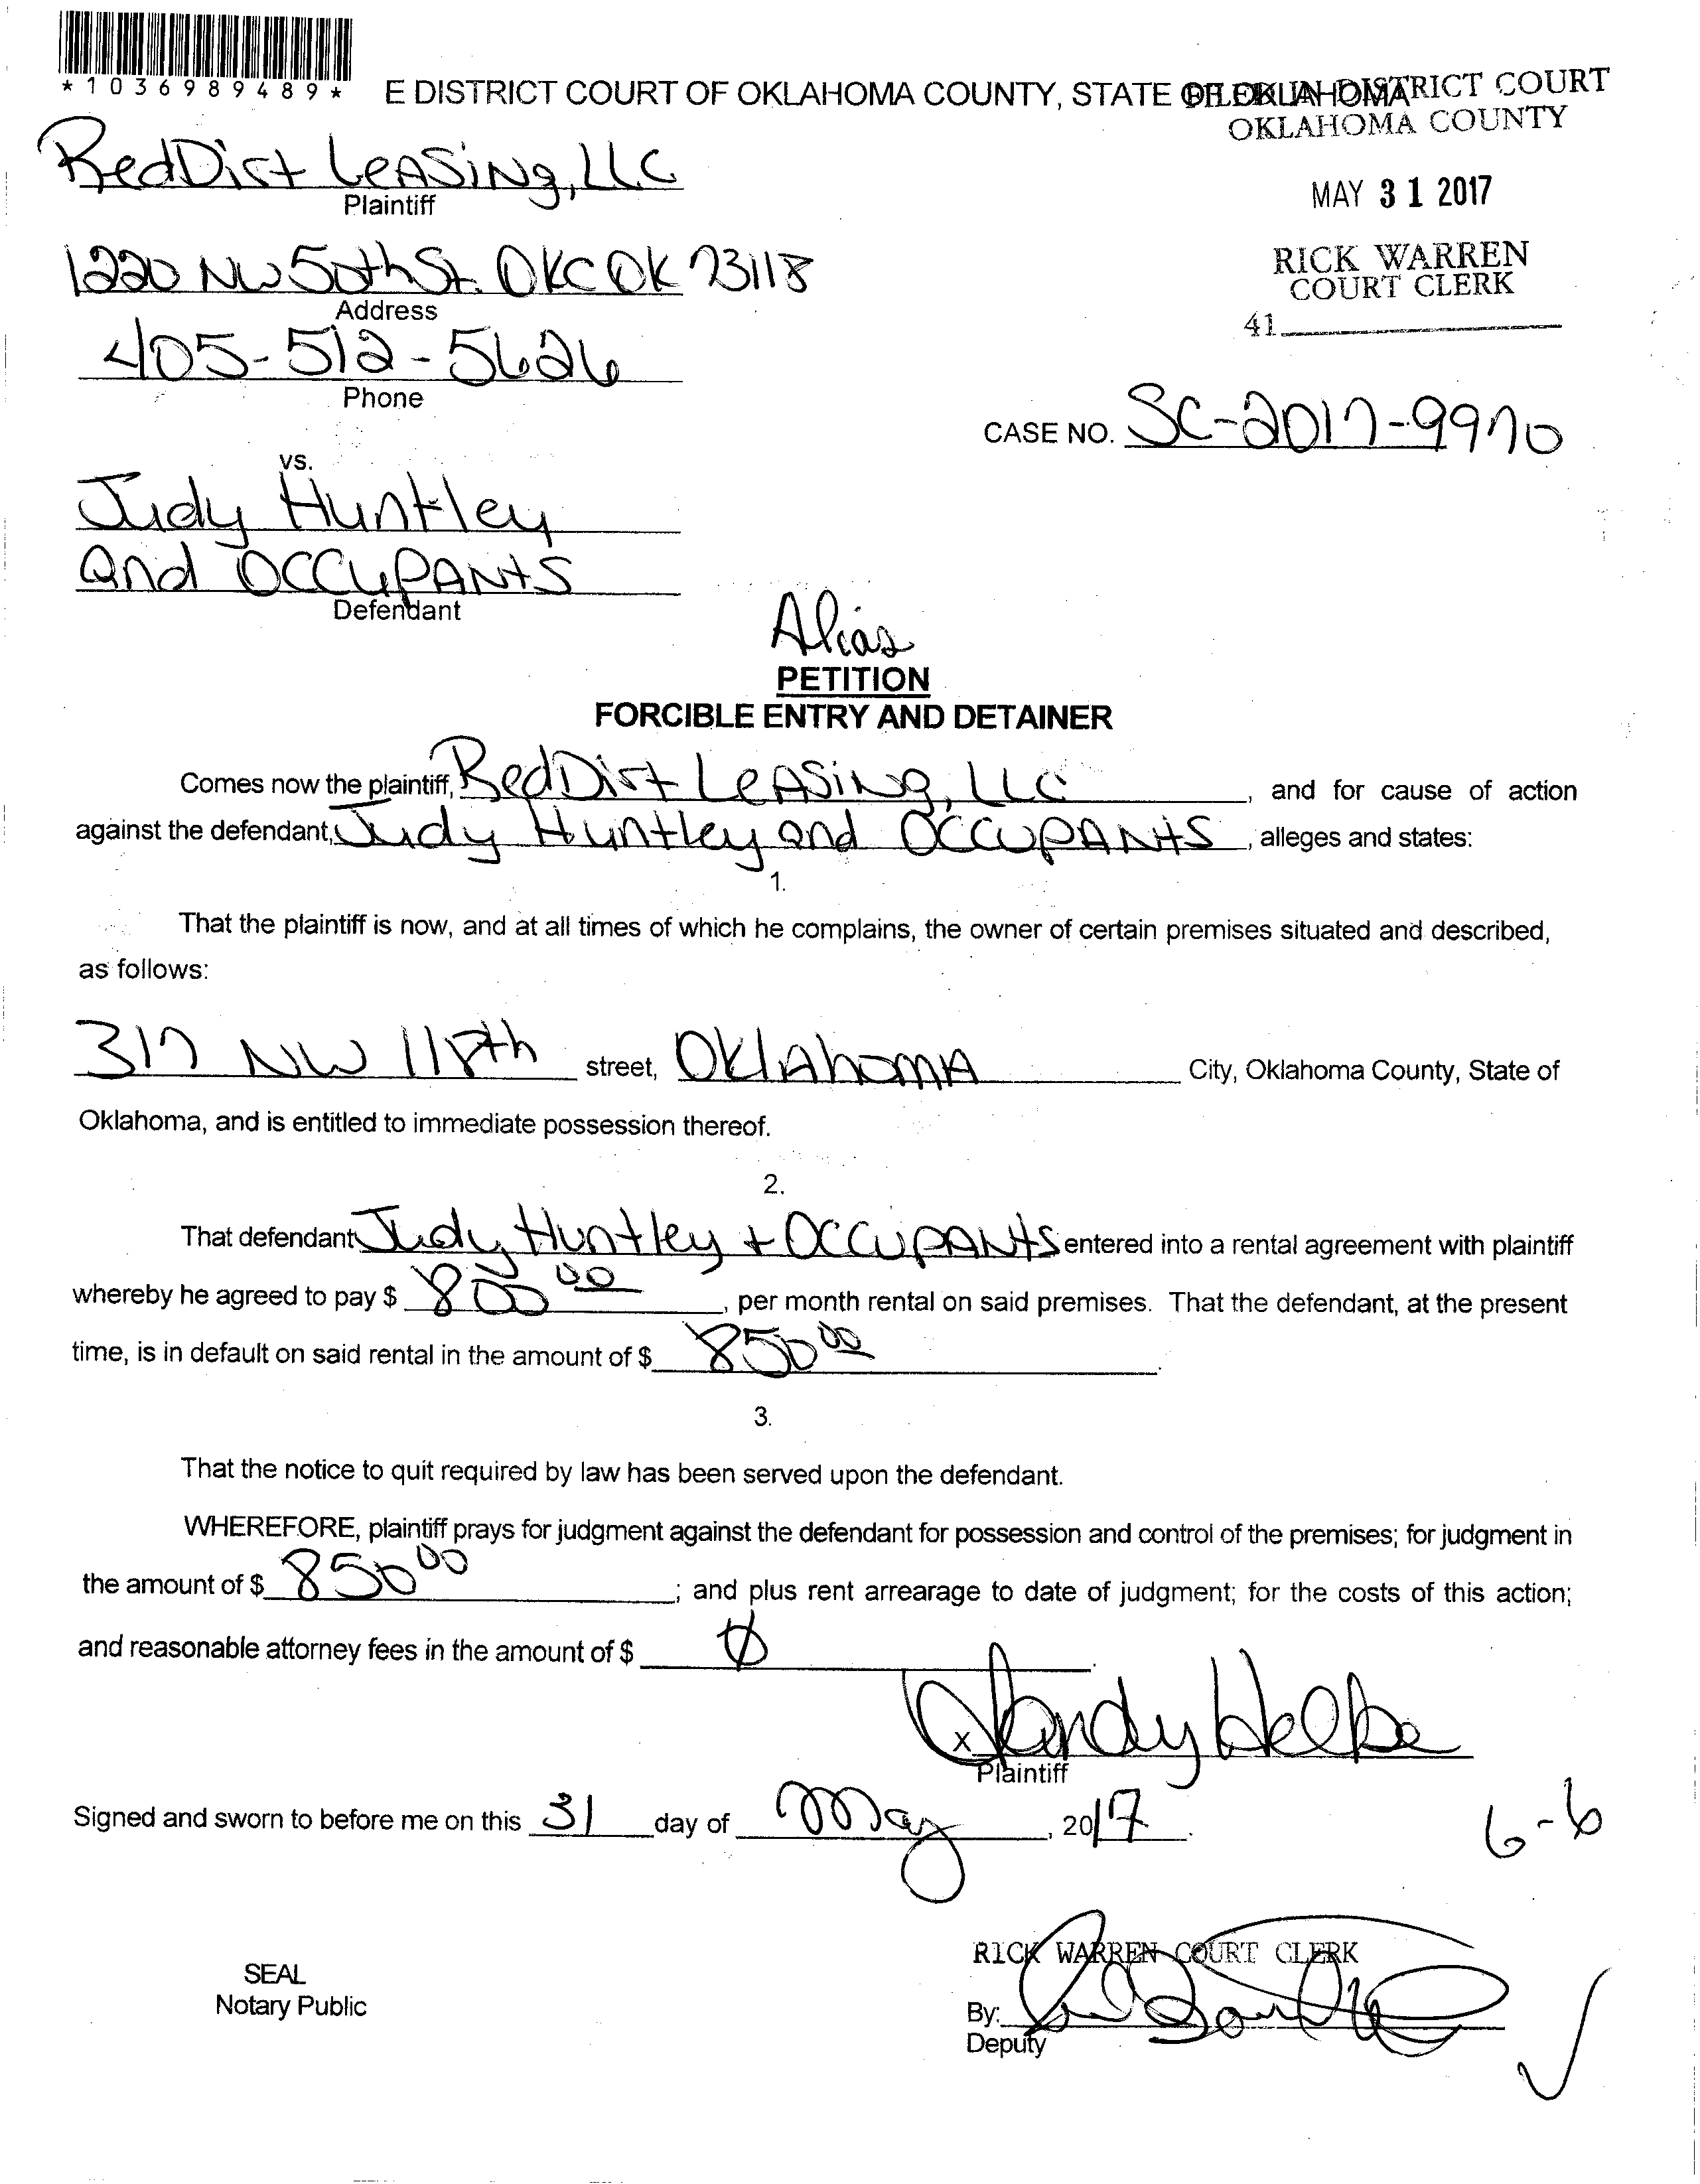 *1036989489*
E DISTRICT COURT OF OKLAHOMA COUNTY, STATE OF OKLAHOMA
FILED IN DISTRICT COURT
OKLAHOMA COUNTY
RedDirt Leasing, LLC
Plaintiff
MAY 31 2017
1220 NW 50th St. OKC OK 73118
Address
RICK WARREN
COURT CLERK
41
405-512-5626
Phone
CASE NO. SC-2017-9970
vs.
Judy Huntley
and Occupants
Defendant
Alias
PETITION
FORCIBLE ENTRY AND DETAINER
Comes now the plaintiff, RedDirt Leasing, LLC, and for cause of action
against the defendant, Judy Huntley and Occupants, alleges and states:
1.
That the plaintiff is now, and at all times of which he complains, the owner of certain premises situated and described,
as follows:
317 NW 118th street, Oklahoma City, Oklahoma County, State of
Oklahoma, and is entitled to immediate possession thereof.
2.
That defendant Judy Huntley + Occupants entered into a rental agreement with plaintiff
whereby he agreed to pay $ 800 00, per month rental on said premises. That the defendant, at the present
time, is in default on said rental in the amount of $ 850 00.
3.
That the notice to quit required by law has been served upon the defendant.
WHEREFORE, plaintiff prays for judgment against the defendant for possession and control of the premises; for judgment in
the amount of $ 850 00; and plus rent arrearage to date of judgment; for the costs of this action;
and reasonable attorney fees in the amount of $ 0.
x
Plaintiff
Signed and sworn to before me on this 31 day of May, 2017.
6-6
RICK WARREN COURT CLERK
SEAL
Notary Public
By:
Deputy